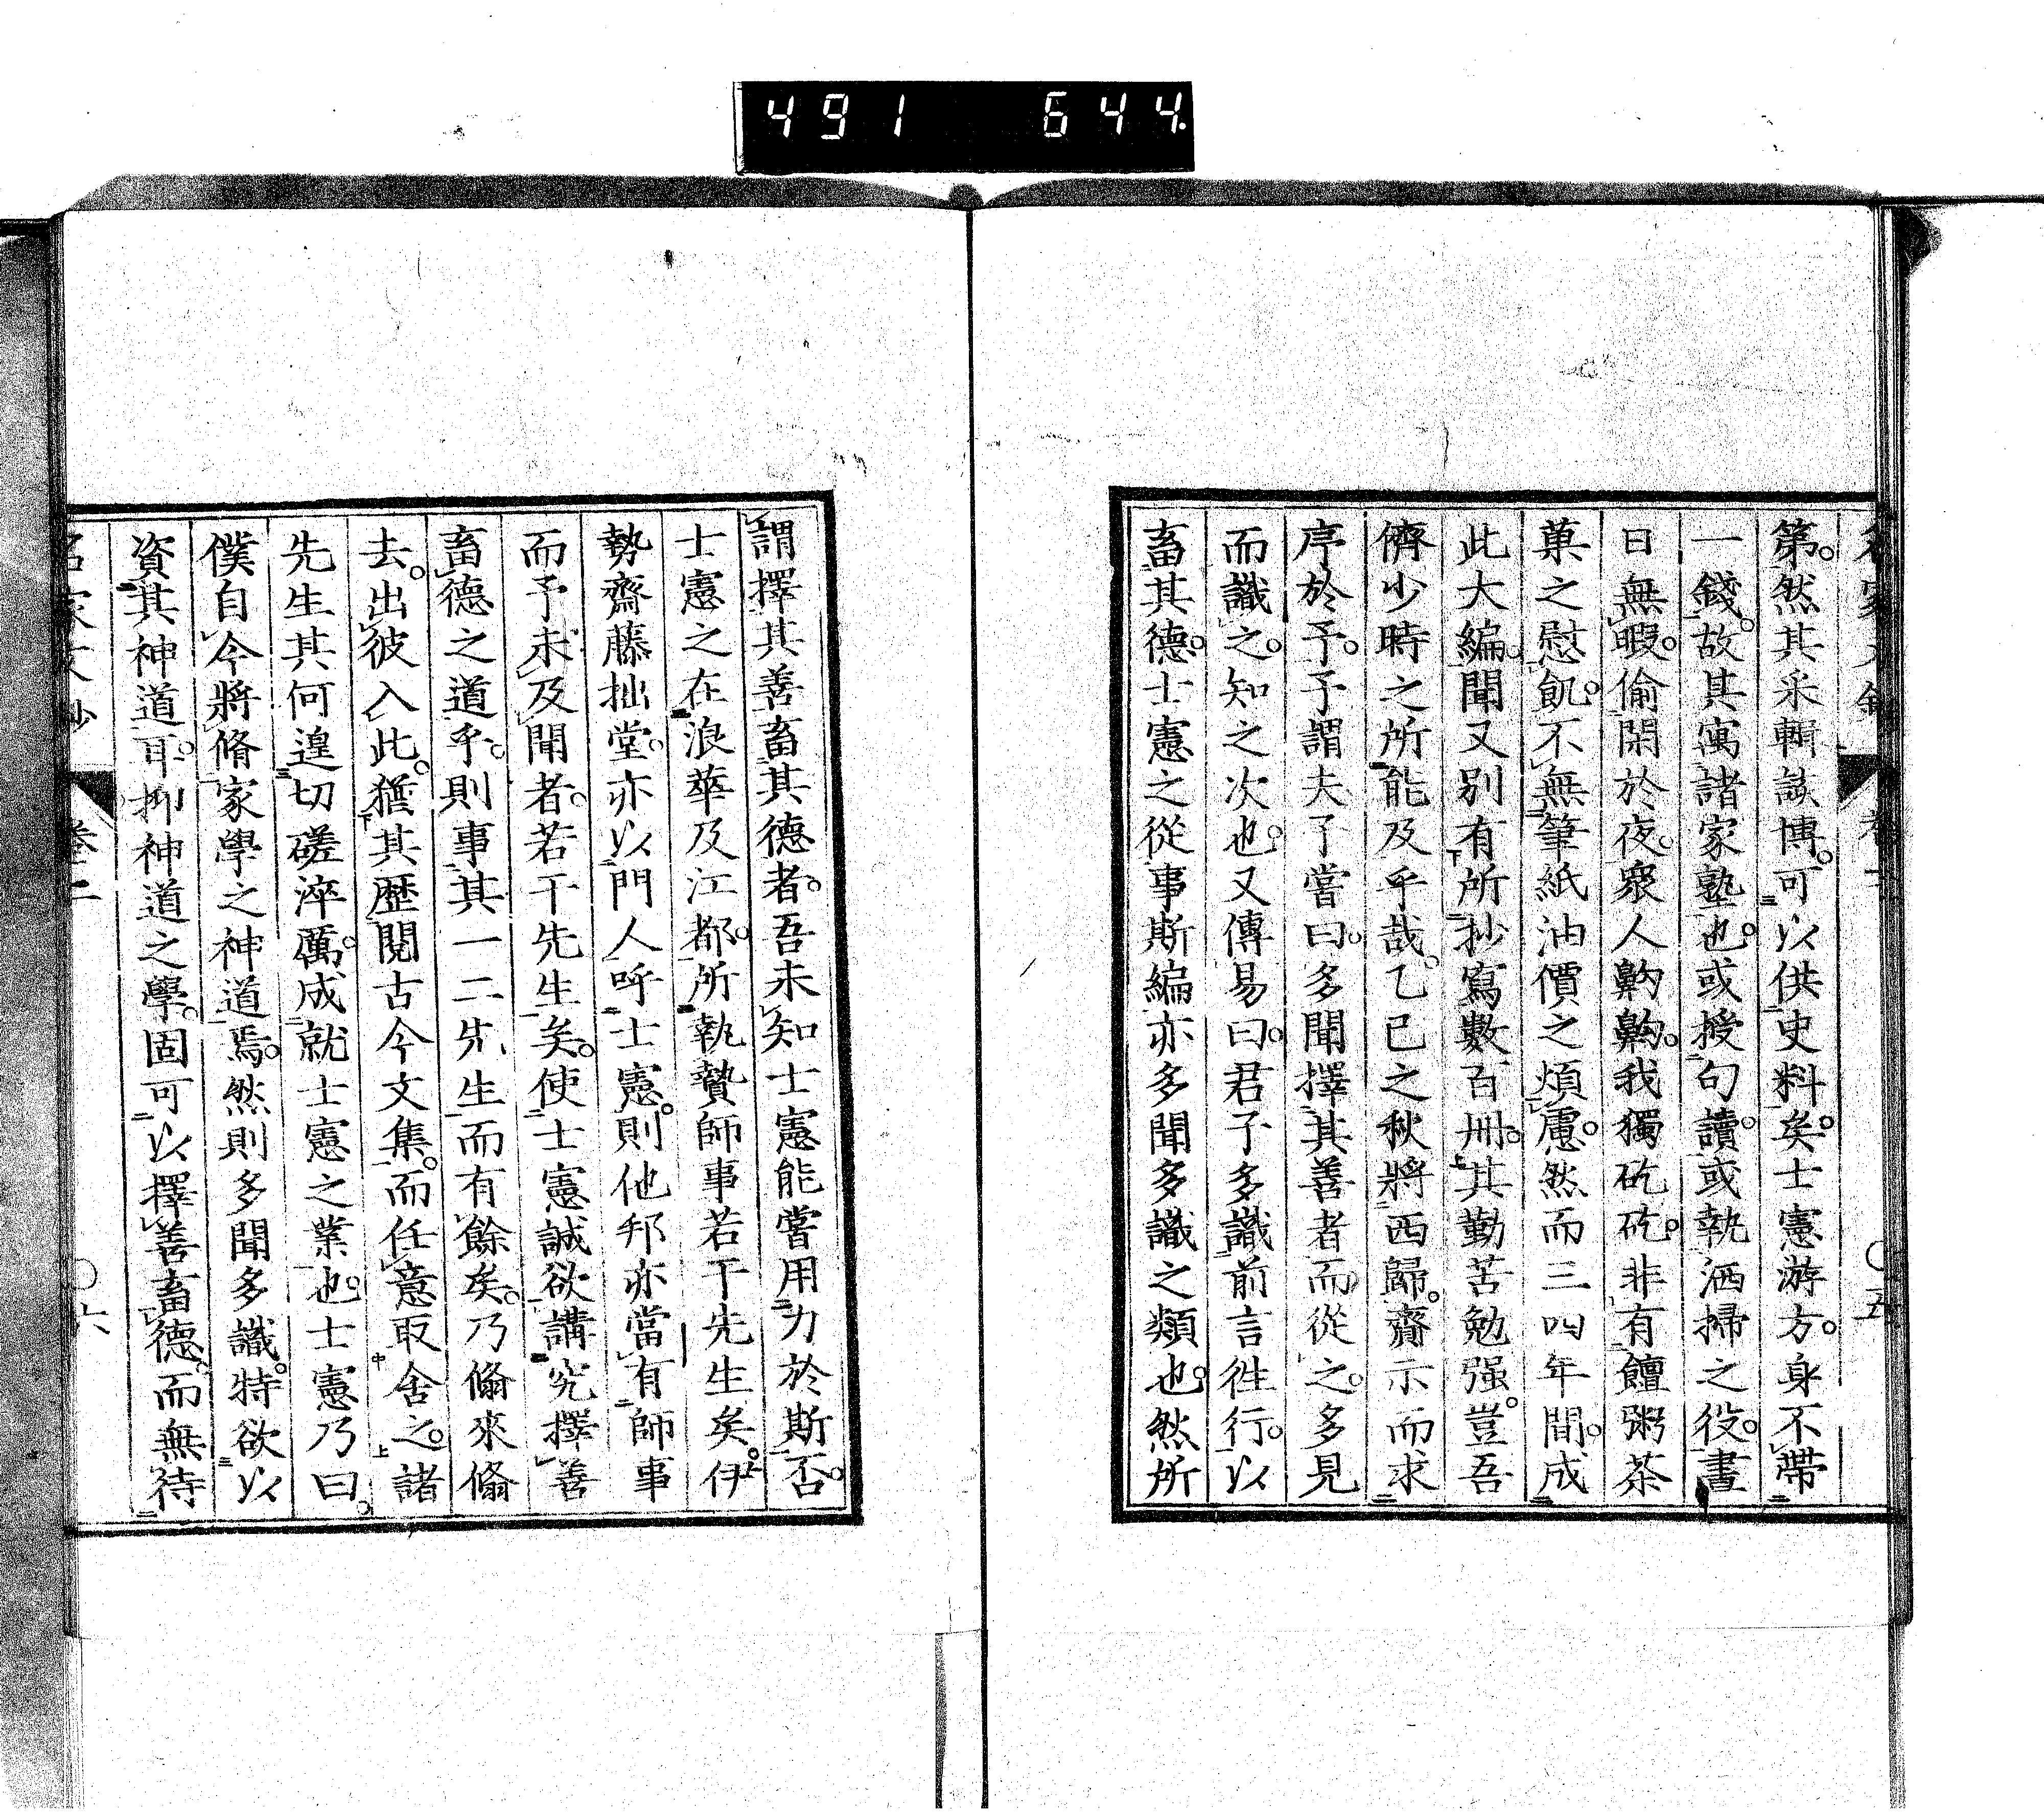 491 644
第。然其采輯該博。可以供史料矣。士憲游方。身不帶
一錢。故其寓諸家塾也。或授句讀。或執洒掃之役。晝
日無暇。偷閑於夜。衆人齁齁。我獨矻矻。非有饘粥茶
菓之慰飢。不無筆紙油價之煩慮。然而三四年間。成
此大編。聞又別有所抄寫數百卅。其勤苦勉强。豈吾
儕少時之所能及乎哉。乙巳之秋。將西歸。齎示而求
序於予。予謂夫子嘗曰。多聞擇其善者而從之。多見
而識之。知之次也。又傳易曰。君子多識前言徃行。以
畜其德。士憲之從事斯編。亦多聞多識之類也。然所
謂擇其善畜其德者。吾未知士憲能嘗用力於斯否。
士憲之在浪華及江都。所執贄師事若干先生矣。伊
勢齋藤拙堂。亦以門人呼士憲。則他邦亦當有師事
而予未及聞者。若干先生矣。使士憲誠欲講究擇善
畜德之道乎。則事其一二先生而有餘矣。乃翛來翛
去。出彼入此。猶其歷閱古今文集。而任意取舍之。諸
先生其何遑切磋淬厲。成就士憲之業也。士憲乃曰。
僕自今將脩家學之神道焉。然則多聞多識。特欲以
資其神道耳。抑神道之學。固可以擇善畜德。而無待
名家文抄 卷二 ○六